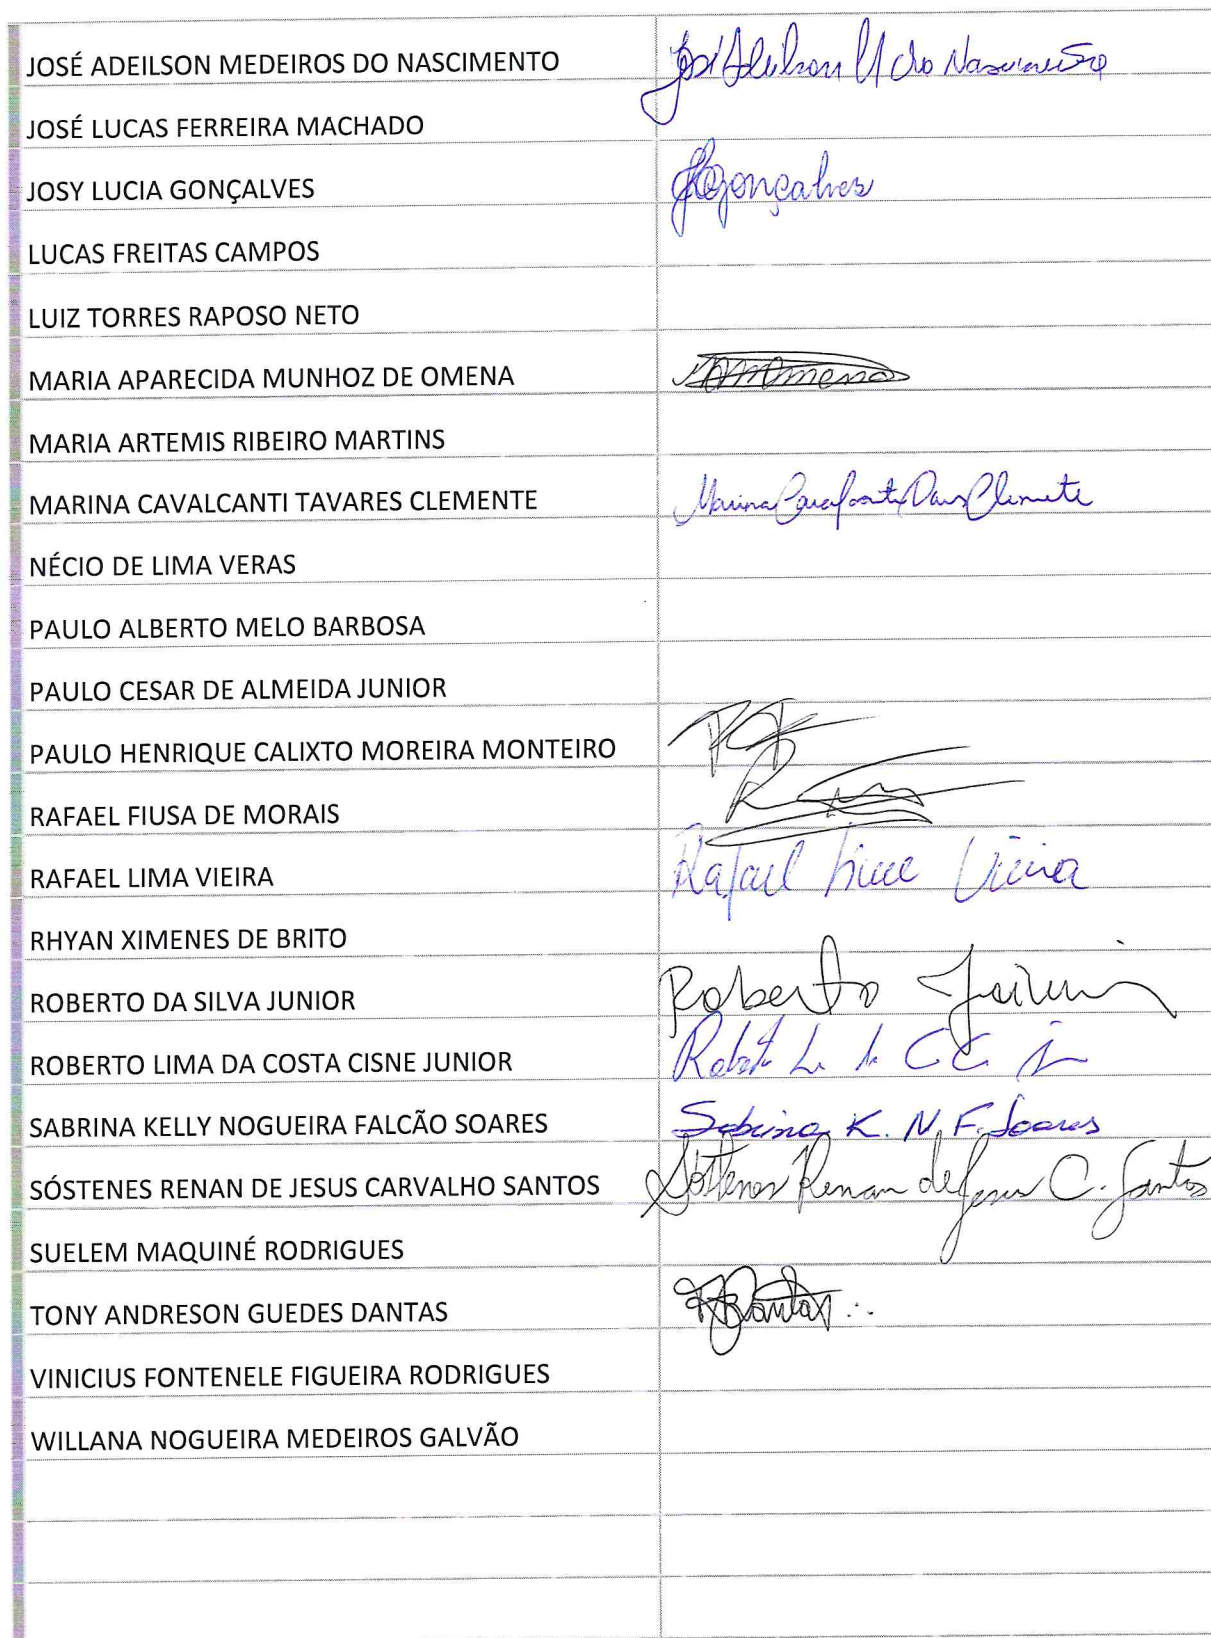 JOSÉ ADEILSON MEDEIROS DO NASCIMENTO José Adeilson M do Nascimento
JOSÉ LUCAS FERREIRA MACHADO
JOSY LUCIA GONÇALVES Gonçalves
LUCAS FREITAS CAMPOS
LUIZ TORRES RAPOSO NETO
MARIA APARECIDA MUNHOZ DE OMENA
MARIA ARTEMIS RIBEIRO MARTINS
MARINA CAVALCANTI TAVARES CLEMENTE Marina Clemente
NÉCIO DE LIMA VERAS
PAULO ALBERTO MELO BARBOSA
PAULO CESAR DE ALMEIDA JUNIOR
PAULO HENRIQUE CALIXTO MOREIRA MONTEIRO
RAFAEL FIUSA DE MORAIS
RAFAEL LIMA VIEIRA Rafael Lima Vieira
RHYAN XIMENES DE BRITO
ROBERTO DA SILVA JUNIOR Roberto Junior
ROBERTO LIMA DA COSTA CISNE JUNIOR Roberto L. de C C. Jr
SABRINA KELLY NOGUEIRA FALCÃO SOARES Sabrina K. N. F. Soares
SÓSTENES RENAN DE JESUS CARVALHO SANTOS Sóstenes Renan de Jesus C. Santos
SUELEM MAQUINÉ RODRIGUES
TONY ANDRESON GUEDES DANTAS Dantas
VINICIUS FONTENELE FIGUEIRA RODRIGUES
WILLANA NOGUEIRA MEDEIROS GALVÃO